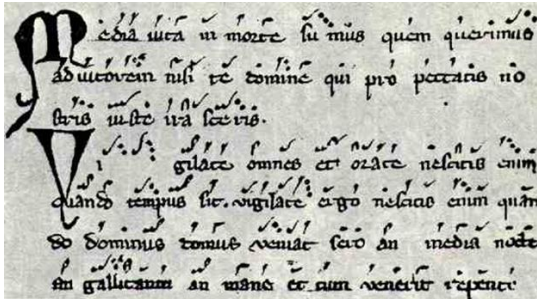 Media vita in morte sumus quem querimus
adiutorem nisi te domine qui pro peccatis no
stris iuste irasceris.
Vigilate omnes et orate nescitis enim
quando tempus sit. vigilate ergo nescitis enim quan
do dominus domus veniat sero an media nocte
an gallicantu an mane et cum venerit repente